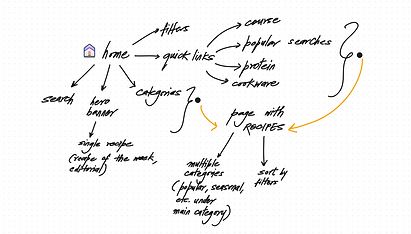 home
filters
quick links
course
popular searches
protein
cookware
search
hero
banner
categories
single recipe
(recipe of the week,
editorial)
page with
RECIPES
multiple
categories
(popular, seasonal,
etc. under
main category)
sort by
filters